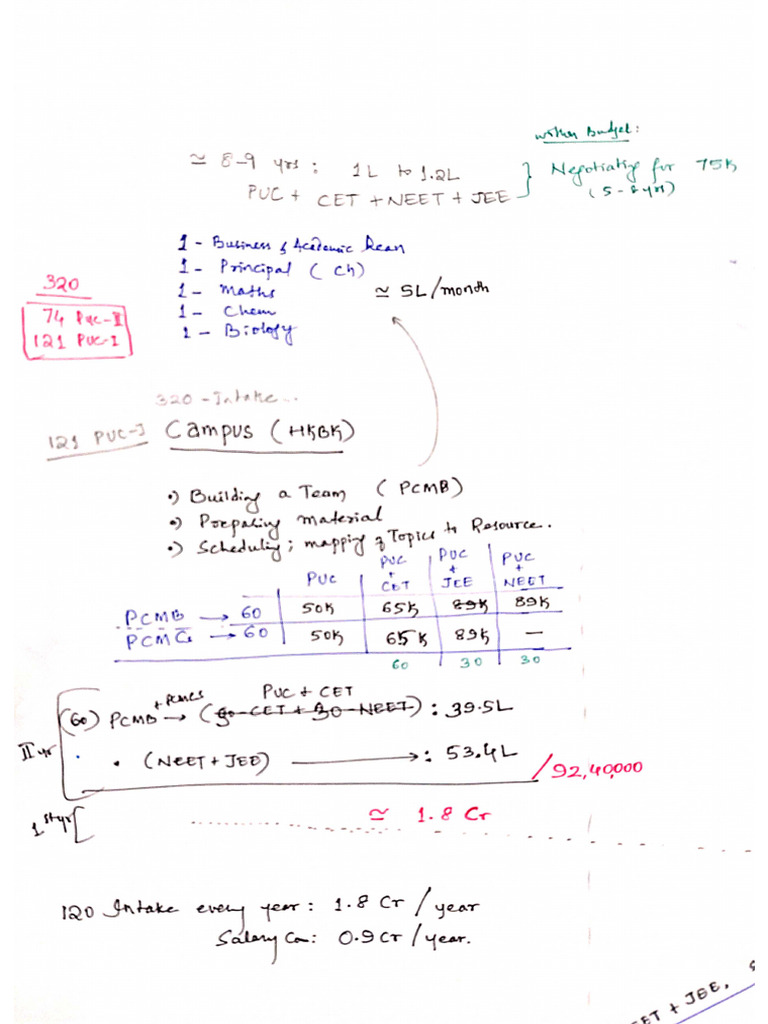 within Budget:
≃ 8-9 yrs : 1L to 1.2L } Negotiating for 75K
PUC + CET + NEET + JEE (5-8 yrs)
1 - Business & Academic Dean
1 - Principal ( Ch)
1 - Maths ≃ 5L/month
1 - Chem
1 - Biology
320
74 PUC-II
121 PUC-I
320 - Intake...
121 PUC-I Campus (HKBK)
•) Building a Team ( PCMB)
•) Preparing Material
•) Scheduling; mapping of Topics to Resource.
PUC PUC + CET PUC + JEE PUC + NEET
PCMB → 60 50K 65K 89K 89K
PCMCs → 60 50K 65K 89K —
60 30 30
PUC + CET
(60) PCMB + PCMCS → (30-CET + 30-NEET) : 39.5L
II yr • (NEET+JEE) → : 53.4L
/92,40,000
1st yr [ ≃ 1.8 Cr
120 Intake every year : 1.8 Cr / year
Salary : 0.9 Cr / year.
+ JEE,